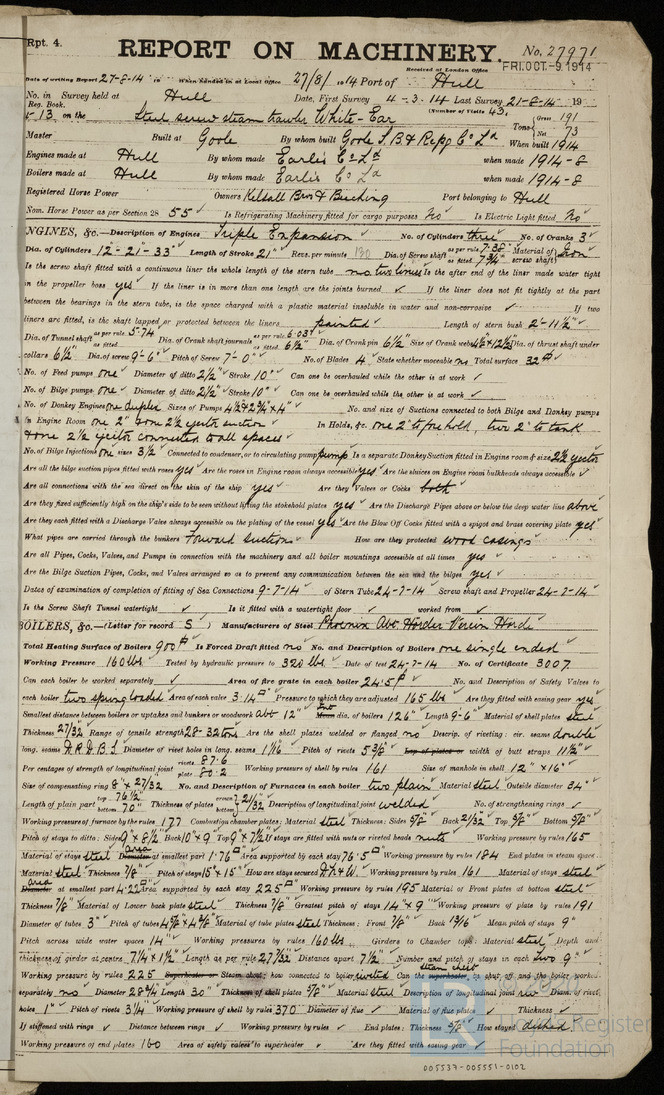 Rpt. 4.
REPORT ON MACHINERY.
No. 27971
Received at London Office
FRI. OCT - 9. 1914
Date of writing Report 27-8-14 When handed in at Local Office 27/8/ 1914 Port of Hull
No. in Survey held at Hull Date, First Survey 4-3-14 Last Survey 21-8-14 19
Reg. Book. (Number of Visits 43.
13 on the Steel screw steam trawler White-Ear Tons Gross 191 Net 73
Master Built at Goole By whom built Goole S.B & Repg Co Ld When built 1914
Engines made at Hull By whom made Earle's Co Ld when made 1914-8
Boilers made at Hull By whom made Earle's Co Ld when made 1914-8
Registered Horse Power Owners Kelsall Bros & Beeching Port belonging to Hull
Nom. Horse Power as per Section 28 55 Is Refrigerating Machinery fitted for cargo purposes No Is Electric Light fitted No
ENGINES, &c.—Description of Engines Triple Expansion No. of Cylinders three No. of Cranks 3
Dia. of Cylinders 12-21-33" Length of Stroke 21" Revs. per minute 130 Dia. of Screw shaft as per rule 7.38 as fitted 7¾" Material of screw shaft Iron
Is the screw shaft fitted with a continuous liner the whole length of the stern tube no two liners Is the after end of the liner made water tight
in the propeller boss yes If the liner is in more than one length are the joints burned ✓ If the liner does not fit tightly at the part
between the bearings in the stern tube, is the space charged with a plastic material insoluble in water and non-corrosive ✓ If two
liners are fitted, is the shaft lapped or protected between the liners painted Length of stern bush 2'-11½"
Dia. of Tunnel shaft as per rule 5.74 as fitted Dia. of Crank shaft journals as per rule 6.03 as fitted 6½" Dia. of Crank pin 6½" Size of Crank webs 4½"x12½" Dia. of thrust shaft under
collars 6½" Dia. of screw 9'-6" Pitch of Screw 7'-0" No. of Blades 4 State whether moveable no Total surface 32
No. of Feed pumps one Diameter of ditto 2½" Stroke 10" Can one be overhauled while the other is at work ✓
No. of Bilge pumps one Diameter of ditto 2½" Stroke 10" Can one be overhauled while the other is at work ✓
No. of Donkey Engines one duplex Sizes of Pumps 4½"x2¾"x4" No. and size of Suctions connected to both Bilge and Donkey pumps
In Engine Room one 2" & on 2½ ejector suction In Holds, &c. one 2" to fore hold, two 2" to tank
& one 2½ ejector connected to all spaces
No. of Bilge Injections one sizes 3½ Connected to condenser, or to circulating pump pump Is a separate Donkey Suction fitted in Engine room & size 2½ ejector
Are all the bilge suction pipes fitted with roses yes Are the roses in Engine room always accessible yes Are the sluices on Engine room bulkheads always accessible ✓
Are all connections with the sea direct on the skin of the ship yes Are they Valves or Cocks both
Are they fixed sufficiently high on the ship's side to be seen without lifting the stokehold plates yes Are the Discharge Pipes above or below the deep water line above
Are they each fitted with a Discharge Valve always accessible on the plating of the vessel yes Are the Blow Off Cocks fitted with a spigot and brass covering plate yes
What pipes are carried through the bunkers Forward suction How are they protected wood casings
Are all Pipes, Cocks, Valves, and Pumps in connection with the machinery and all boiler mountings accessible at all times yes
Are the Bilge Suction Pipes, Cocks, and Valves arranged so as to prevent any communication between the sea and the bilges yes
Dates of examination of completion of fitting of Sea Connections 9-7-14 of Stern Tube 24-7-14 Screw shaft and Propeller 24-7-14
Is the Screw Shaft Tunnel watertight ✓ Is it fitted with a watertight door ✓ worked from ✓
BOILERS, &c.—(Letter for record S) Manufacturers of Steel Phoenix Abt Horder Verein Horde
Total Heating Surface of Boilers 900 Is Forced Draft fitted no No. and Description of Boilers one single ended
Working Pressure 160 lbs Tested by hydraulic pressure to 320 lbs Date of test 24-7-14 No. of Certificate 3007
Can each boiler be worked separately ✓ Area of fire grate in each boiler 24.5 No. and Description of Safety Valves to
each boiler two spring loaded Area of each valve 3.14 Pressure to which they are adjusted 165 lbs Are they fitted with easing gear yes
Smallest distance between boilers or uptakes and bunkers or woodwork abt 12" Int dia. of boilers 126" Length 9'-6" Material of shell plates steel
Thickness 27/32 Range of tensile strength 28-32 tons Are the shell plates welded or flanged no Descrip. of riveting: cir. seams double
long. seams Diameter of rivet holes in long. seams 1 1/16 Pitch of rivets 5 3/8" width of butt straps 11½"
Per centages of strength of longitudinal joint rivets 87.6 plate 80.2 Working pressure of shell by rules 161 Size of manhole in shell 12" x 16"
Size of compensating ring 8" x 27/32 No. and Description of Furnaces in each boiler two plain Material steel Outside diameter 34"
Length of plain part top 76½" bottom 70" Thickness of plates crown bottom 21/32 Description of longitudinal joint welded No. of strengthening rings ✓
Working pressure of furnace by the rules 177 Combustion chamber plates: Material steel Thickness: Sides 5/8" Back 21/32 Top 5/8" Bottom 5/8"
Pitch of stays to ditto: Sides 9" x 8½" Back 10" x 9 Top 9" x 7½" If stays are fitted with nuts or riveted heads nuts Working pressure by rules 165
Material of stays steel area at smallest part 1.76 Area supported by each stay 76.5 Working pressure by rules 184 End plates in steam space
Material steel Thickness 7/8" Pitch of stays 15" x 15" How are stays secured Working pressure by rules 161 Material of stays steel
area at smallest part 4.22 Area supported by each stay 225 Working pressure by rules 195 Material of Front plates at bottom steel
Thickness 7/8" Material of Lower back plate steel Thickness 7/8" Greatest pitch of stays 14" x 9" Working pressure of plate by rules 191
Diameter of tubes 3" Pitch of tubes 4 5/8" x 4 5/8" Material of tube plates steel Thickness: Front 7/8" Back 13/16" Mean pitch of stays 9"
Pitch across wide water spaces 14" Working pressures by rules 160 lbs Girders to Chamber tops: Material steel Depth and
thickness of girder at centre 7¼ x 1½" Length as per rule 27 7/32 Distance apart 7½" Number and pitch of stays in each two 9"
Working pressure by rules 225 Steam chest; how connected to boiler riveted Can the steam chest be shut off and the boiler worked
separately no Diameter 28¾" Length 30" Thickness of shell plates 5/8" Material steel Description of longitudinal joint Diam. of rivet
holes 1" Pitch of rivets 3¼" Working pressure of shell by rules 370 Diameter of flue ✓ Material of flue plates ✓ Thickness ✓
If stiffened with rings ✓ Distance between rings ✓ Working pressure by rules ✓ End plates: Thickness 5/8" How stayed dished
Working pressure of end plates 160 Area of safety valves to superheater ✓ Are they fitted with easing gear ✓
Lloyd's Register
Foundation
005537-005551-0102